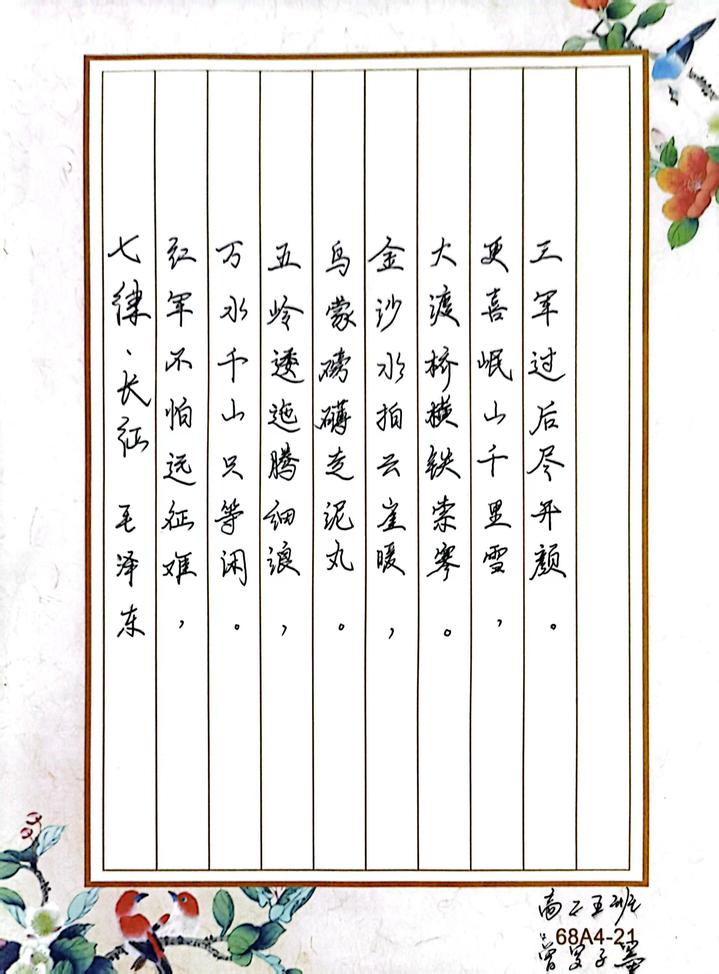 七律、长征 毛泽东
红军不怕远征难，
万水千山只等闲。
五岭逶迤腾细浪，
乌蒙磅礴走泥丸。
金沙水拍云崖暖，
大渡桥横铁索寒。
更喜岷山千里雪，
三军过后尽开颜。
高二五班
68A4-21